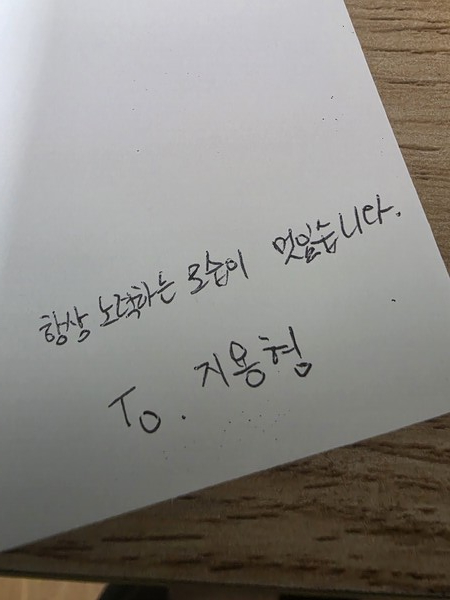 항상 노력하는 모습이 멋있습니다.
To. 지용형